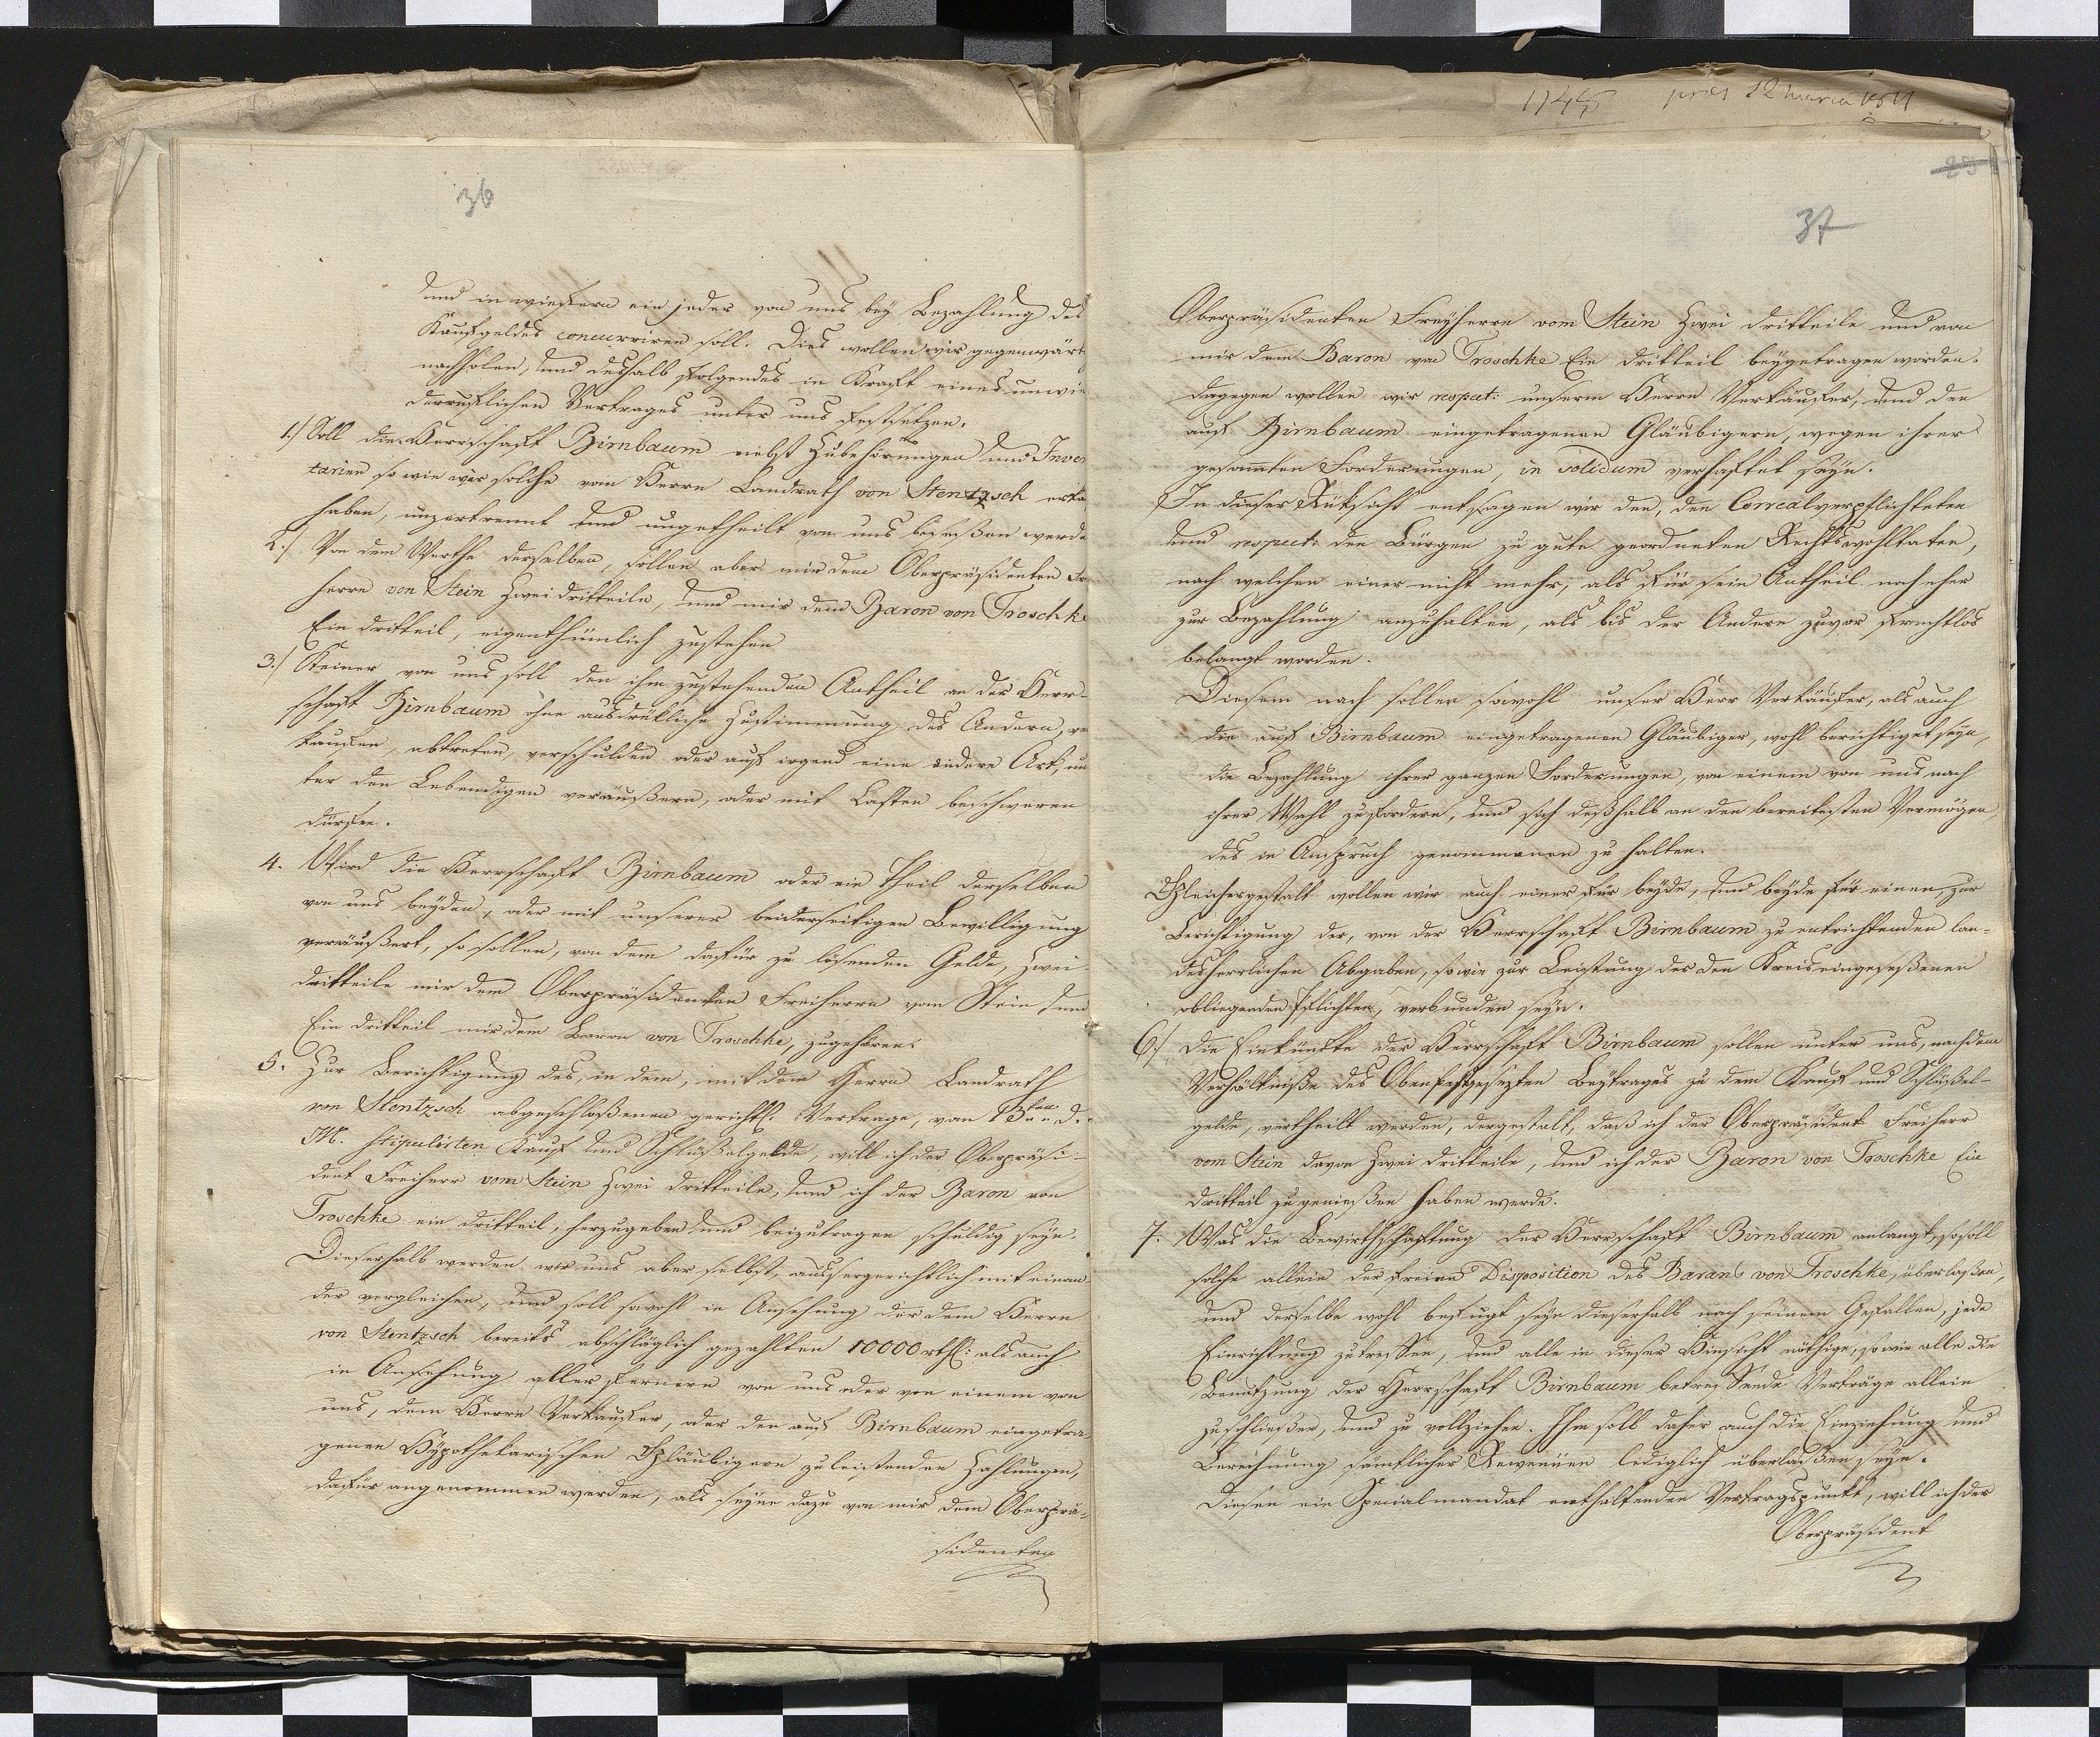 36
und in wiefern ein jeder von uns bey Bezahlung des
Kaufgeldes concurriren soll. Dies wollen wir gegenwärt
nachholen, und deshalb folgendes in Kraft eines unwie
derruflichen Vertrages unter uns festsetzen.
1./ Soll die Herrschaft Birnbaum nebst Zubehörungen und Inven
tarien so wie wir solche vom Herrn Landrath von Stentzsch erka
haben, unzertrennt und ungetheilt von uns beseßen werde
2./ Von dem Werthe derselben, sollen aber mir dem Oberpräsidenten Frei
herrn von Stein Zweidritteile, und mir dem Baron von Troschke
Ein dritteil, eigenthümlich zustehen
3./ Keiner von uns soll den ihm zustehenden Antheil an der Herr-
schaft Birnbaum ohne ausdrükliche Zustimmung des Andern, ver
kaufen, abtreten, verschulden oder auf irgend eine andere Art, un
ter den Lebendigen veräußern, oder mit Lasten beschweren
dürfen.
4. Wird die Herrschaft Birnbaum oder ein Theil derselben
von uns beyden, oder mit unserer beiderseitigen Bewilligung
veräußert, so sollen, von dem dafür zu lösenden Gelde, Zwei-
dritteile mir dem Oberpräsidenten Freiherrn vom Stein und
Ein dritteil mir dem Baron von Troschke, zugehören.
5. Zur Berichtigung des, in dem, mit dem Herrn Landrath
von Stentzsch abgeschloßenen gerichtl. Vertrage, vom 13ten d.
M. stipulirten Kauf und Schlüßelgelde, will ich der Oberpräsi-
dent Freiherr vom Stein Zwei dritteile, und ich der Baron von
Troschke ein dritteil, herzugeben und beizutragen schuldig seyn.
Dieserhalb werden wir uns aber selbst, aussergerichtlich mit einan-
der vergleichen, und soll sowohl in Ansehung der dem Herrn
von Stentzsch bereits abschläglich gezahlten 10000 rthl: als auch
in Ansehung aller fernern von uns oder von einem von
uns, dem Herrn Verkäufer, oder den auf Birnbaum eingetra
genen Hypothekarischen Gläubigern zuleistenden Zahlungen,
dafür angenommen werden, als seyen dazu von mir dem Oberprä-
sidenten
1745 12 37
Oberpräsidenten Freyherrn vom Stein Zwei dritteile und von
mir dem Baron von Troschke Ein dritteil beygetragen worden.
Dagegen wollen wir respect: unserm Herrn Verkäufer, und den
auf Birnbaum eingetragenen Gläubigern, wegen ihrer
gesamten Forderungen, in solidum verhaftet seyn.
In dieser Rüksicht entsagen wir den, den Correalverpflichteten
und respect: den Bürgen zu gute geordneten Rechtswohltaten,
nach welchen einer nicht mehr, als für sein Antheil noch eher
zur Bezahlung anzuhalten, als bis der Andere zuvor fruchtlos
belangt worden.
Diesem nach sollen sowohl unser Herr Verkäufer, als auch
die auf Birnbaum eingetragenen Gläubiger, wohl berichtiget seyn,
die Bezahlung ihrer ganzen Forderungen, von einem von uns nach
ihrer Wahl zu fordern, und sich deßhalb an den bereitesten Vermögen,
des in Anspruch genommenen zu halten.
Gleichergestalt wollen wir auch einer für beyde, und beyde für einen, zur
Berichtigung der, von der Herrschaft Birnbaum zu entrichtenden lan-
desherrlichen Abgaben, sowie zur Leistung der den Kreiseingeseßenen
obliegenden Pflichten, verbunden seyn.
6./ Die Einkünfte der Herrschaft Birnbaum sollen unter uns, nach dem
Verhältniße des Obenfestgesezten Beytrages zu dem Kauf und Schlüßel-
gelde, vertheilt werden, dergestalt, daß ich der Oberpräsident Freiherr
vom Stein davon Zwei dritteile, und ich der Baron von Troschke Ein
dritteil zu genießen haben werde.
7. Was die Bewirthschaftung der Herrschaft Birnbaum anlangt, so soll
solche allein der freien Disposition des Barons von Troschke, überlaßen,
und derselbe wohl befugt seyn dieserhalb nach seinem Gefallen, jede
Einrichtung zutreffen, und alle in dieser Hinsicht nöthige, so wie alle die
Benutzung der Herrschaft Birnbaum betreffende Verträge allein
zu schließen, und zu vollziehen. Ihm soll daher auch die Einziehung und
Berechnung sämtlicher Revenüen lediglich überlaßen seyn.
Diesen ein Specialmandat enthaltenden Vertragspunkt, will ich der
Oberpräsident